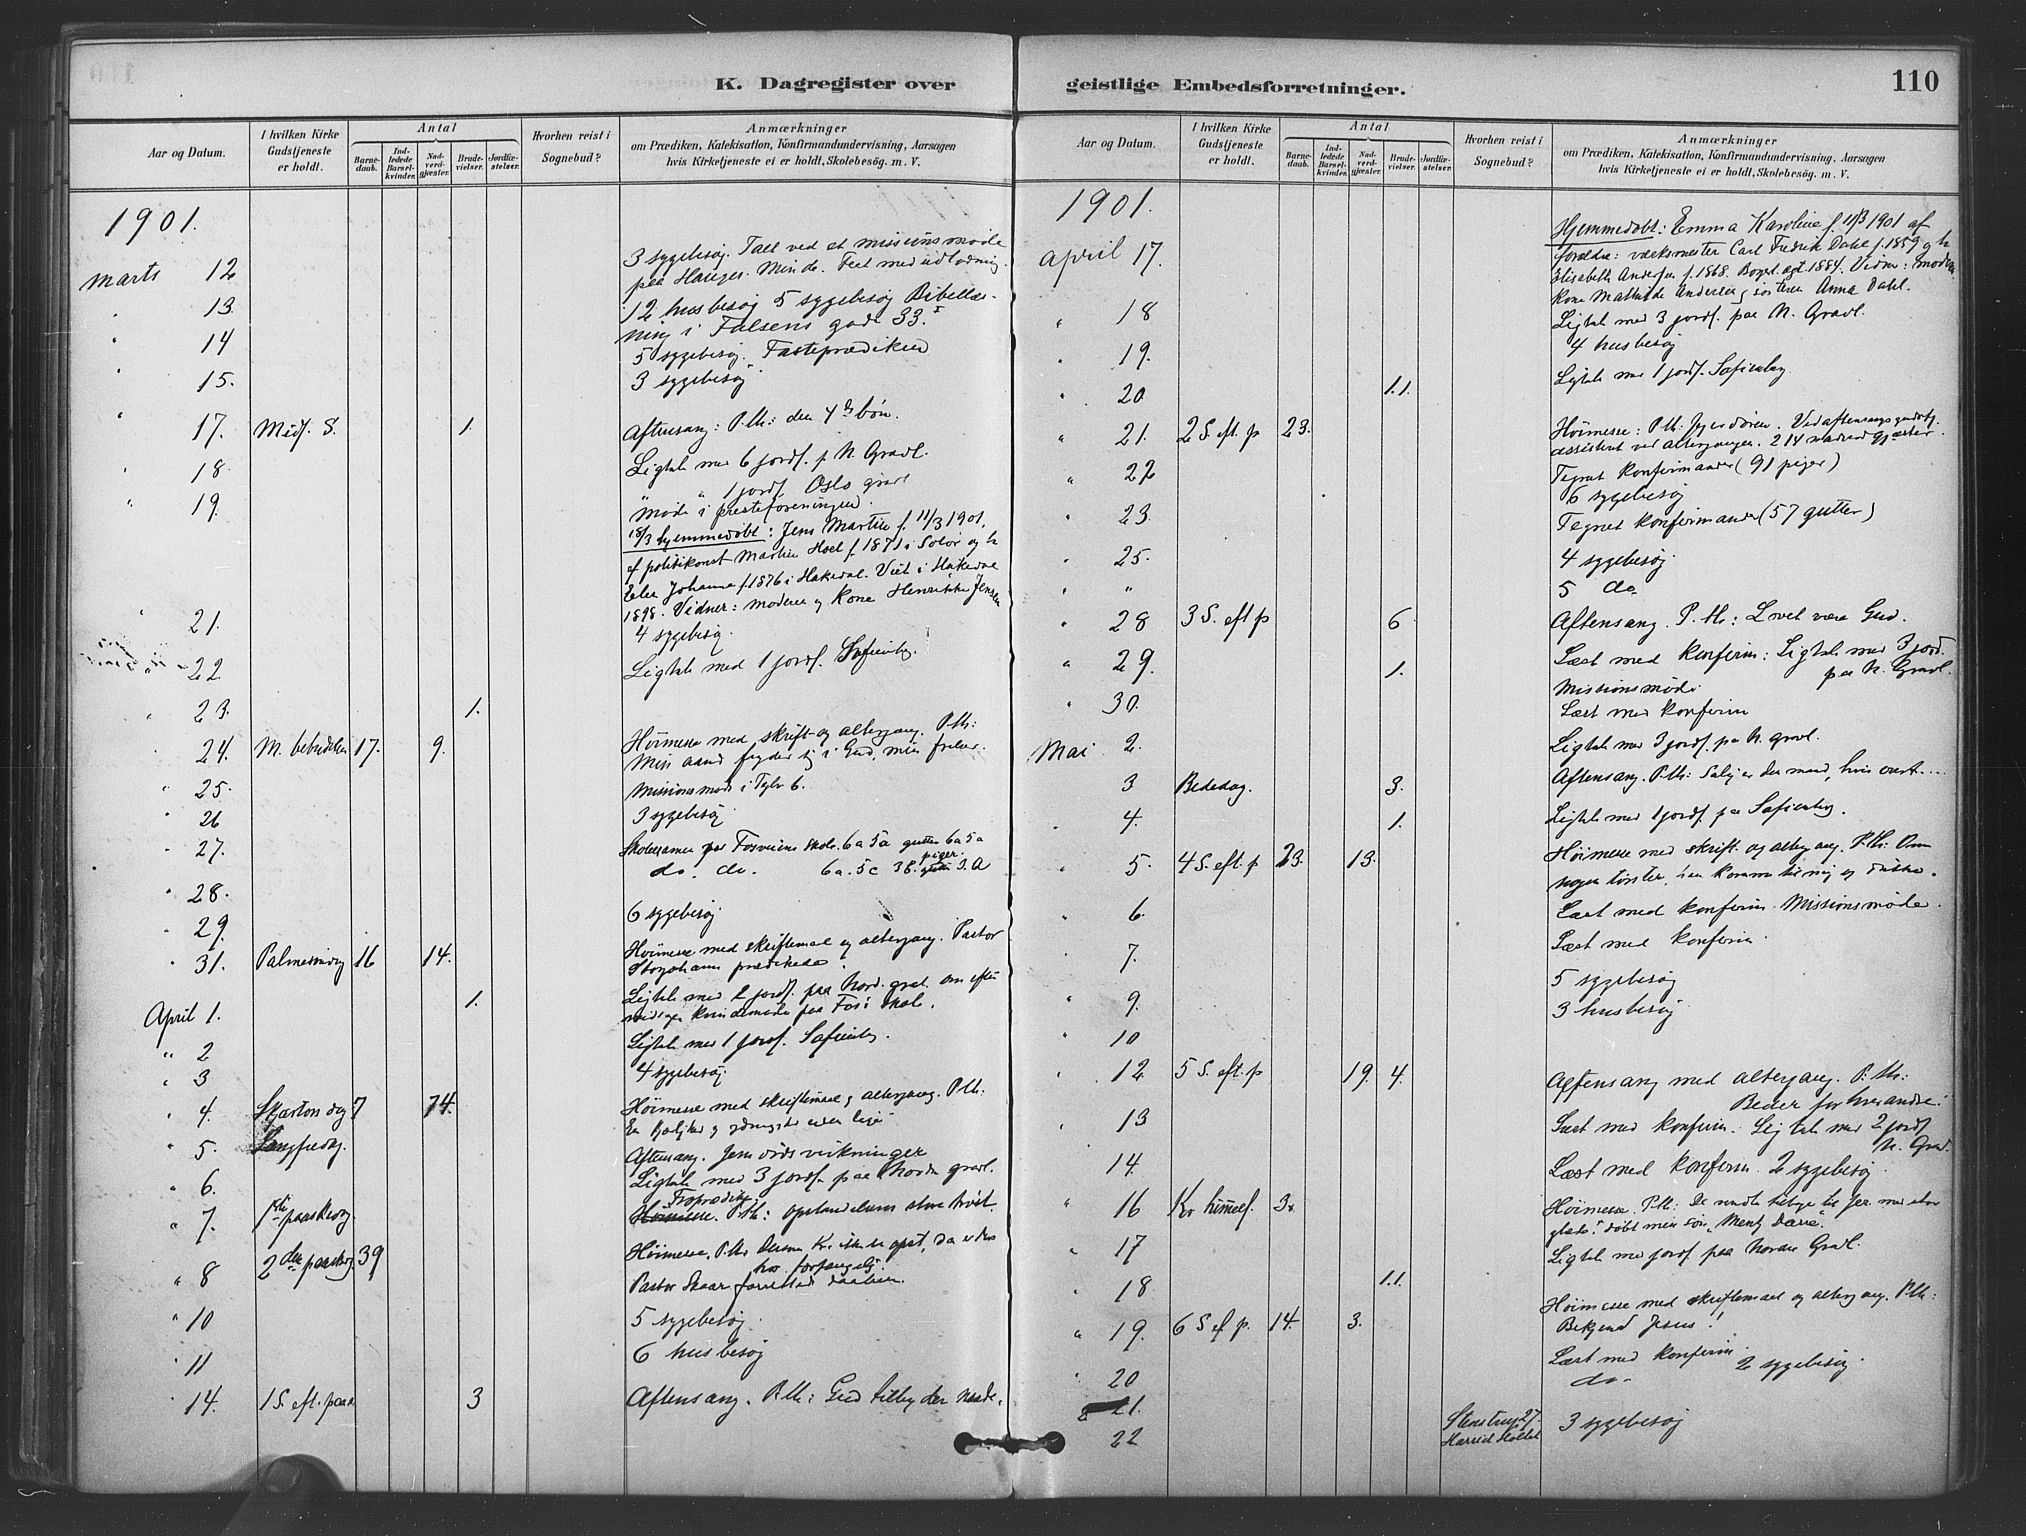 K. Dagregister over
Aar og Datum.
I hvilken Kirke Gudstjeneste er holdt.
Antal
Barnedaab.
Indledede Barselkvinder.
Nadverdgjæster.
Brudevielser.
Jordfæstelser.
Hvorhen reist i Sognebud?
Anmærkninger
om Prædiken, Katekisation, Konfirmandundervisning, Aarsagen
hvis Kirketjeneste ei er holdt, Skolebesøg. m. V.
1901.
marts 12 3 sygebesøg. Tale ved et missionsmøde
paa Hauges Minde. Fest med udlodning.
" 13. 12 husbesøg 5 sygebesøg Bibellæs-
ning i Falsens gade 33.
" 14 5 sygebesøg. Fasteprædiken
" 15. 3 sygebesøg
" 17. Midf. S. 1. Aftensang: P.th: den 4de bøn.
" 18. Ligtale med 6 jordf. p N Gravl.
" " 1 jordf. Oslo gravl
" 19. møde i presteforeningen.
18/3 hjemmedøbt: Jens Martin f. 11/3 1901,
af politikonst Martin Hoel f. 1871 i Solør og h
Johanne f. 1876 i Hakedal. Viet i Hakedal
1898. Vidner: moderen og Kone Henrikke Jensen
" 21. 4 sygebesøg.
" 22 Ligtale med 1 jordf. Sofienbg.
" 23. 1.
" 24. M. bebudelse 17. 9. Høimesse med skrift og altergang. P.th:
Min aand fryder sig i Gud, min frelser.
" 25. Missionsmøde i
" 26 3 sygebesøg
" 27. Skoleexamen paa Fosveiens skole. 6a 5a gutter 6a 5a
piger.
do. do. 6a. 5c 3 A
" 28.
" 29. 6 sygebesøg
" 31. Palmesøndg 16 14. Høimesse med skriftemaal og altergang. Pastor
Storjohann prædikede.
April 1. 1. Ligtale med 2 jordf. paa Nord. gravl. om efter
middagen kvindemøde paa Fos. skole.
" 2 Ligtale med 1 jordf. Sofienbg.
" 3 4 sygebesøg.
" 4. Skjærtorsdag 7 74. Høimesse med skriftemaal og altergang. P.th:
" 5. Langfredag. Aftensang. Jesu døds virkninger
" 6. Ligtale med 3 jordf. paa Nordre gravl.
Froprædiken
" 7. 1ste paaskedag. Høimesse. P.th: opstandelsens store
" 8 2den paaskedg 39 Høimesse. P.th: Dersom Kr. ikke er opst, da er deres
tro forfængelig.
Pastor Skaar forrettede daaben.
" 10 5 sygebesøg.
" 11 6 husbesøg
" 14. 1 S. eft. paask. 3 Aftensang. P.th: Gud tilbyder naade.
geistlige Embedsforretninger.
110
Aar og Datum.
I hvilken Kirke Gudstjeneste er holdt.
Antal
Barnedaab.
Indledede Barselkvinder.
Nadverdgjæster.
Brudevielser.
Jordfæstelser.
Hvorhen reist i Sognebud?
Anmærkninger
om Prædiken, Katekisation, Konfirmandundervisning, Aarsagen
hvis Kirketjeneste ei er holdt, Skolebesøg. m. V.
1901.
April 17. Hjemmedøbt: Emma Karoline f. 11/3 1901 af
forældre: værksmester Carl Fredrik Dahl f. 1859 og h
Elisabeth Andersen f. 1868. Borgerl. ægt. 1884. Vidner: moderen
Kone Mathilde Andersen og søsteren Anna Dahl.
" 18 Ligtale med 3 jordf. paa N. Gravl.
" 19. 4 husbesøg
" 20 1.1. Ligtale med 1 jordf. Sofienbg
" 21. 2 S. eft p 23. Høimesse: P.th: Jeg er døren. Ved aftensangsgudstj.
assistent ved altergangen. 214 nadverdgjæster.
" 22 Tegnet Konfirmander (91 piger)
6 sygebesøg
" 23. Tegnet konfirmander (57 gutter)
" 25. 4 sygebesøg
" " 5 do
" 28 3 S. eft p 6 Aftensang. P.th: Lovet være Gud.
" 29. 1. Læst med Konfirm: Ligtale med 3 jord.
paa N. Gravl.
Missionsmøde
" 30. Læst med konfirm
Mai 2. Ligtale med 3 jordf. paa N. gravl.
3 Bededag. 3. Aftensang. P.th: Salig er den mand, hvis overt....
" 4. 1. Ligtale med 1 jordf. paa Sofienbg.
" 5. 4 S. eft. p 23. 13. Høimesse med skrift. og altergang. P.th: Om
nogen tørster, han komme til mig og drikke.
" 6. Læst med konfirm. Missionsmøde.
" 7. Læst med konfirm.
5 sygebesøg
" 9. 3 husbesøg
" 10
" 12. 5 S. eft. p 19. 4. Aftensang med altergang. P.th:
Beder for hverandre!
" 13 Læst med konfirm. Ligtale med 2 jordf
N. Grav.
" 14. Læst med konfirm. 2 sygebesøg.
" 16 Kr himmelf. 3. Høimesse. P.th: De vendte tilbage til Jer. med stor
glæde. døbt min søn,
" 17 Ligtale med jordf. paa Nordre Gravl.
" 18 1.1.
" 19. 6 S. ef p. 14. 3. Høimesse med skriftemaal og altergang. P.th:
Bekjend Jesus!
" 20 Læst med konfirm. 2 sygebesøg.
21. do
22 3 sygebesøg